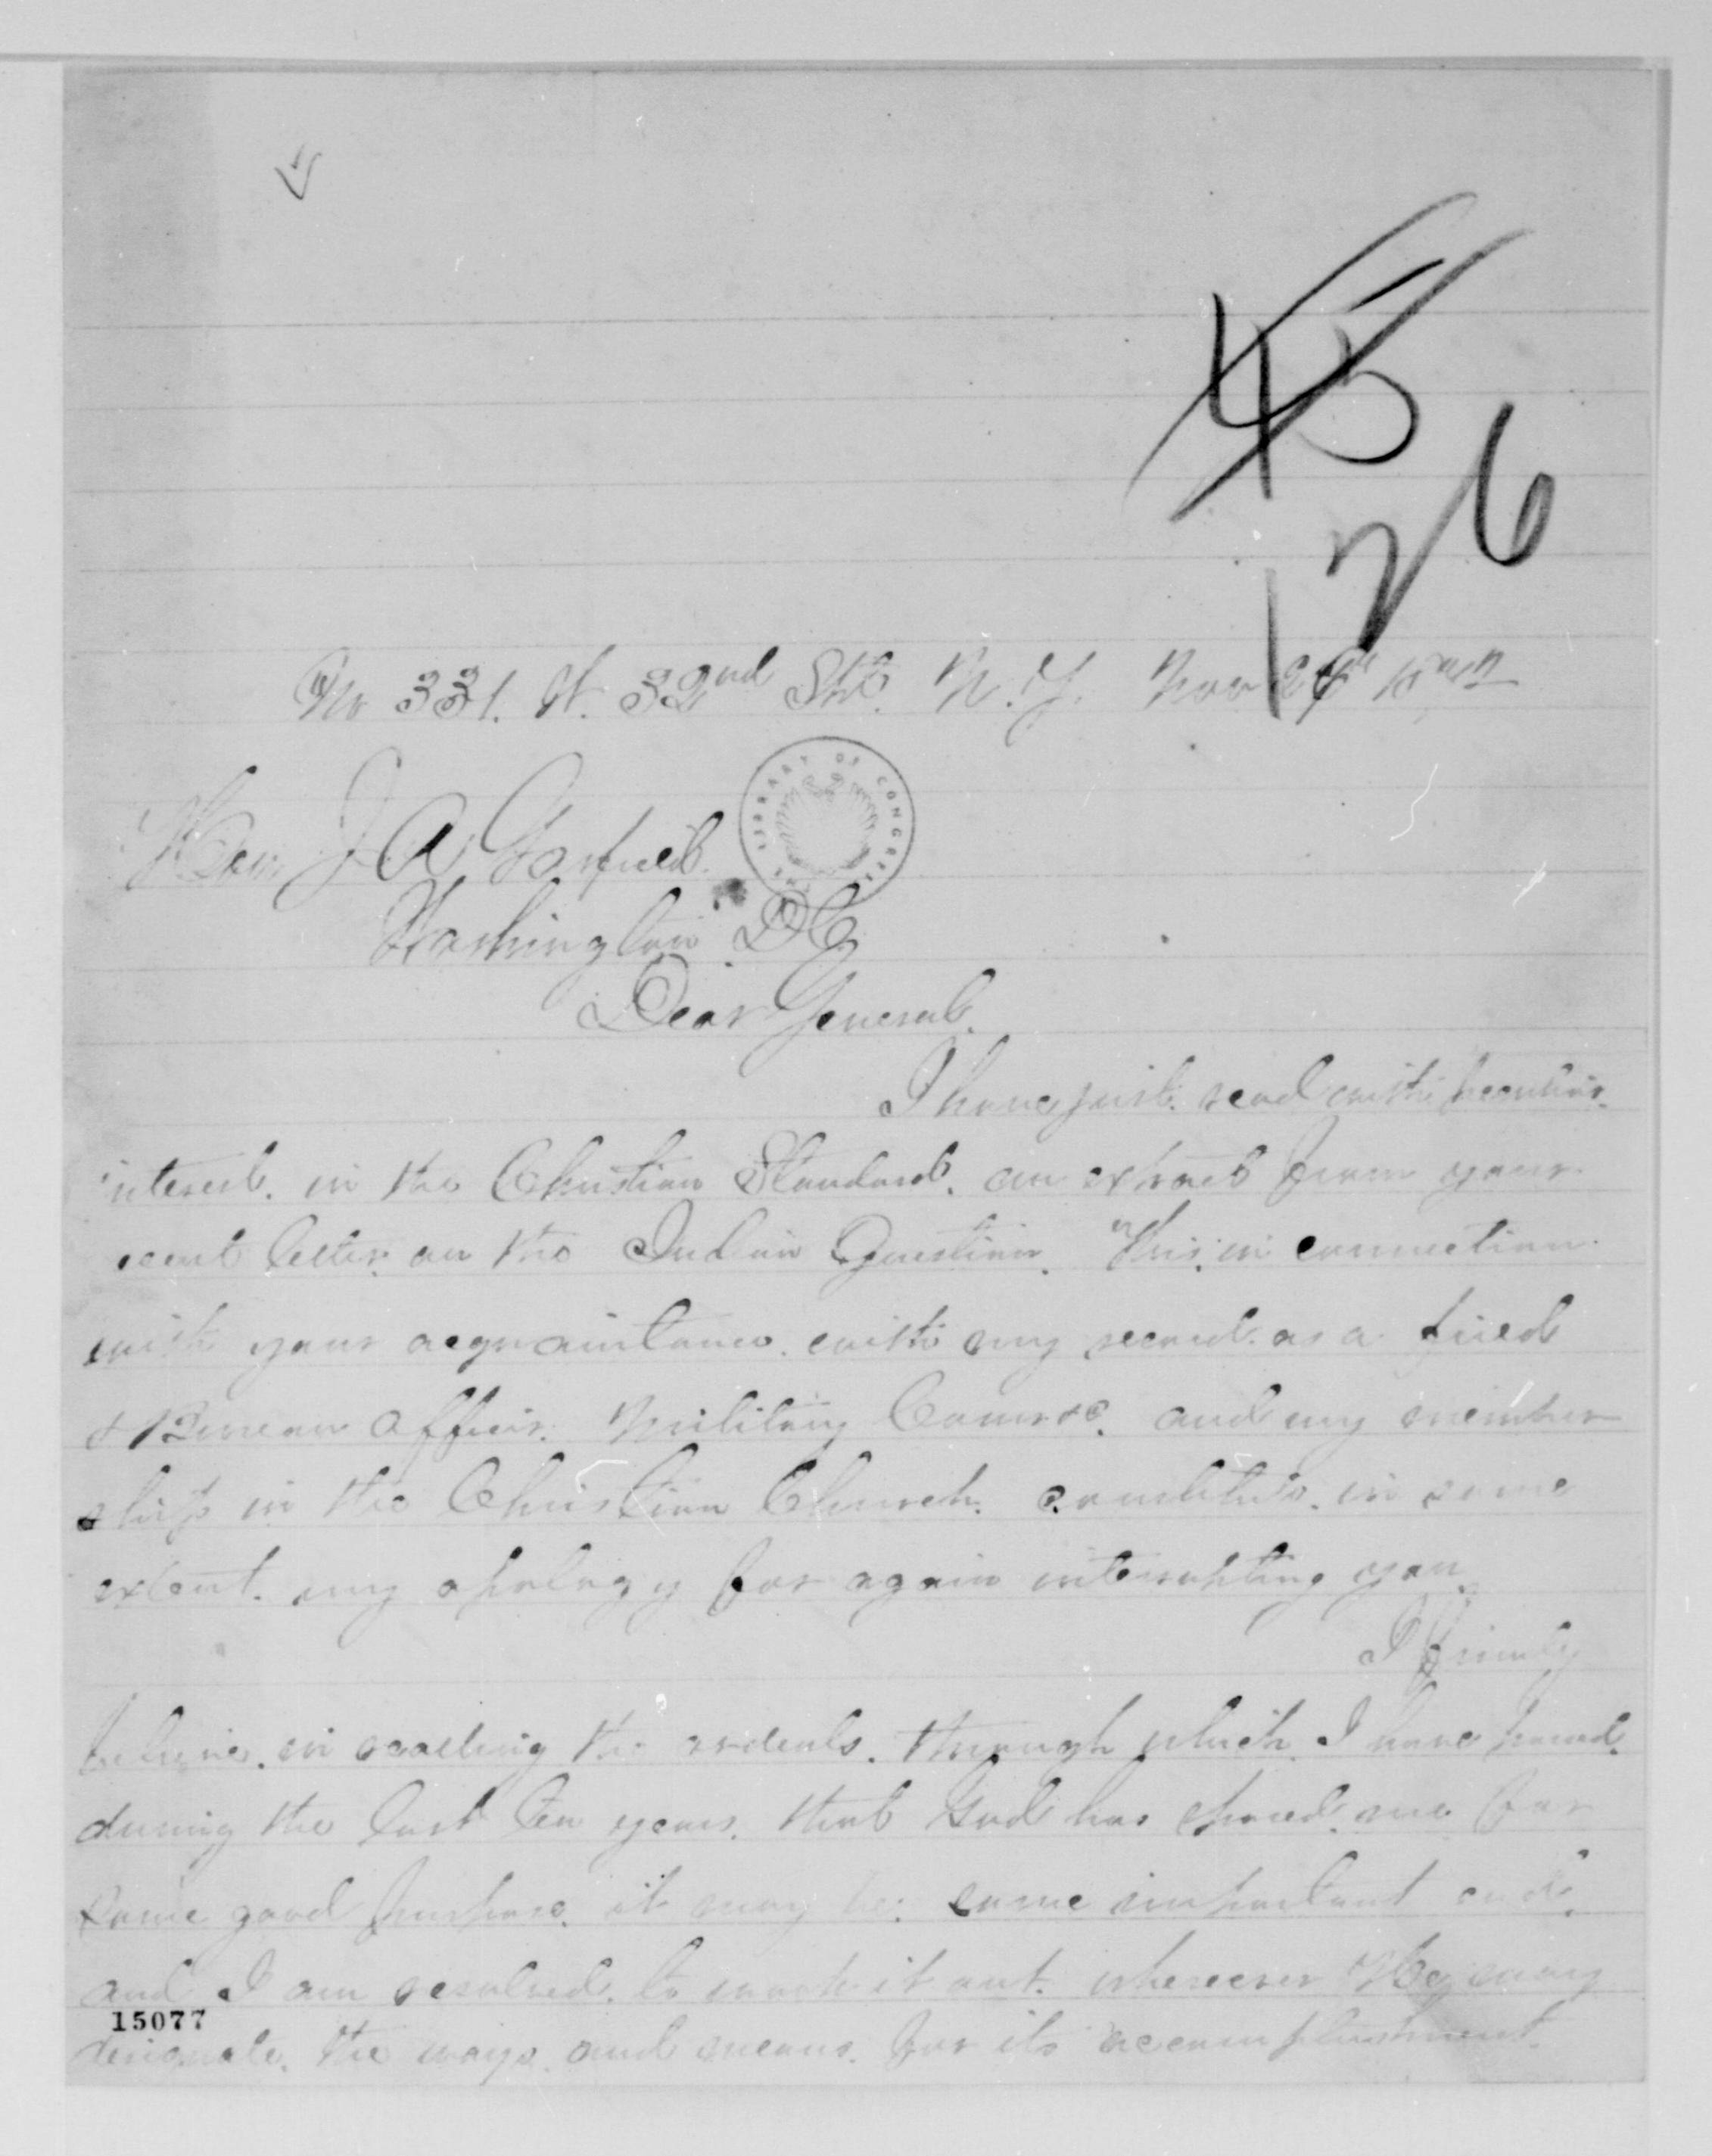 45
126
No 331. W. 32nd Str. N.Y. Nov
THE LIBRARY OF CONGRESS
Hon J A Garfield.
Washington D C
Dear General.
I have just. read with peculiar.
interest. in the Christian Standard. an extract from your.
recent letter. on the Indian Question. This. in connection.
with your acquaintance. with my record. as a field
& Bureau officer. Military Course. and my member
ship in the Christian Church. constitute. in some
extent. my apology for again interrupting you.
I firmly
believe. in recalling the ordeals. through which I have passed.
during the last ten years. that God has spared. me for
some good purpose. it may be. some important end.
and I am resolved. to work it out. wherever He may
designate. the ways. and means. for its accomplishment.
15077